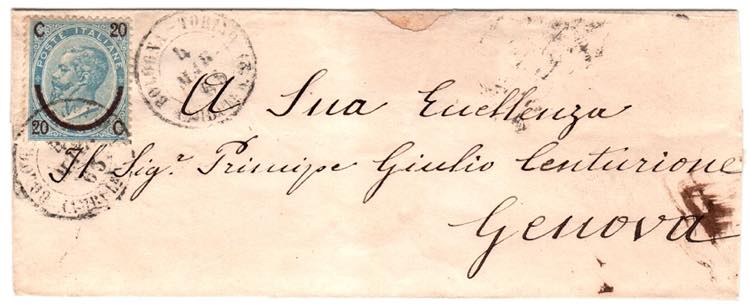 C 20
POSTE ITALIANE
20 C
BOLOGNA TORINO (2)
4
MAR
65
A Sua Eccellenza
Il Sig.r Principe Giulio Centurione
Genova